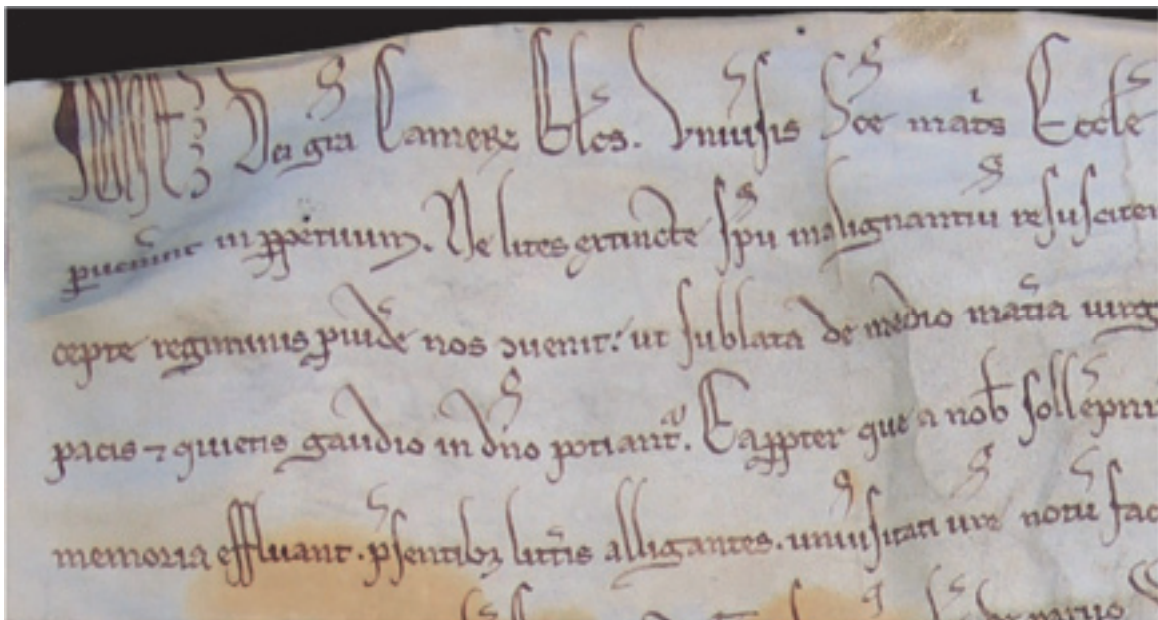 Dei gr̄a Camerꝝ Elc̄s. Vniu̾sis Sc̄e mat̾s Eccl̄e
ꝑuen̾int in ꝑpetuum. Ne lites extincte sp̄u malignantiū resusciten
cepte regiminis ꝓuidē nos ꝯuenit: ut sublata de medio mat̾ia iurg
pacis ⁊ quietis gaudio in dn̄o potiant᷑. Eaꝓpter que a nob̄ sollēpni
memoria effluant. p̄sentibꝫ litt̾is alligantes. uniu̾sitati ur̄e notū fac